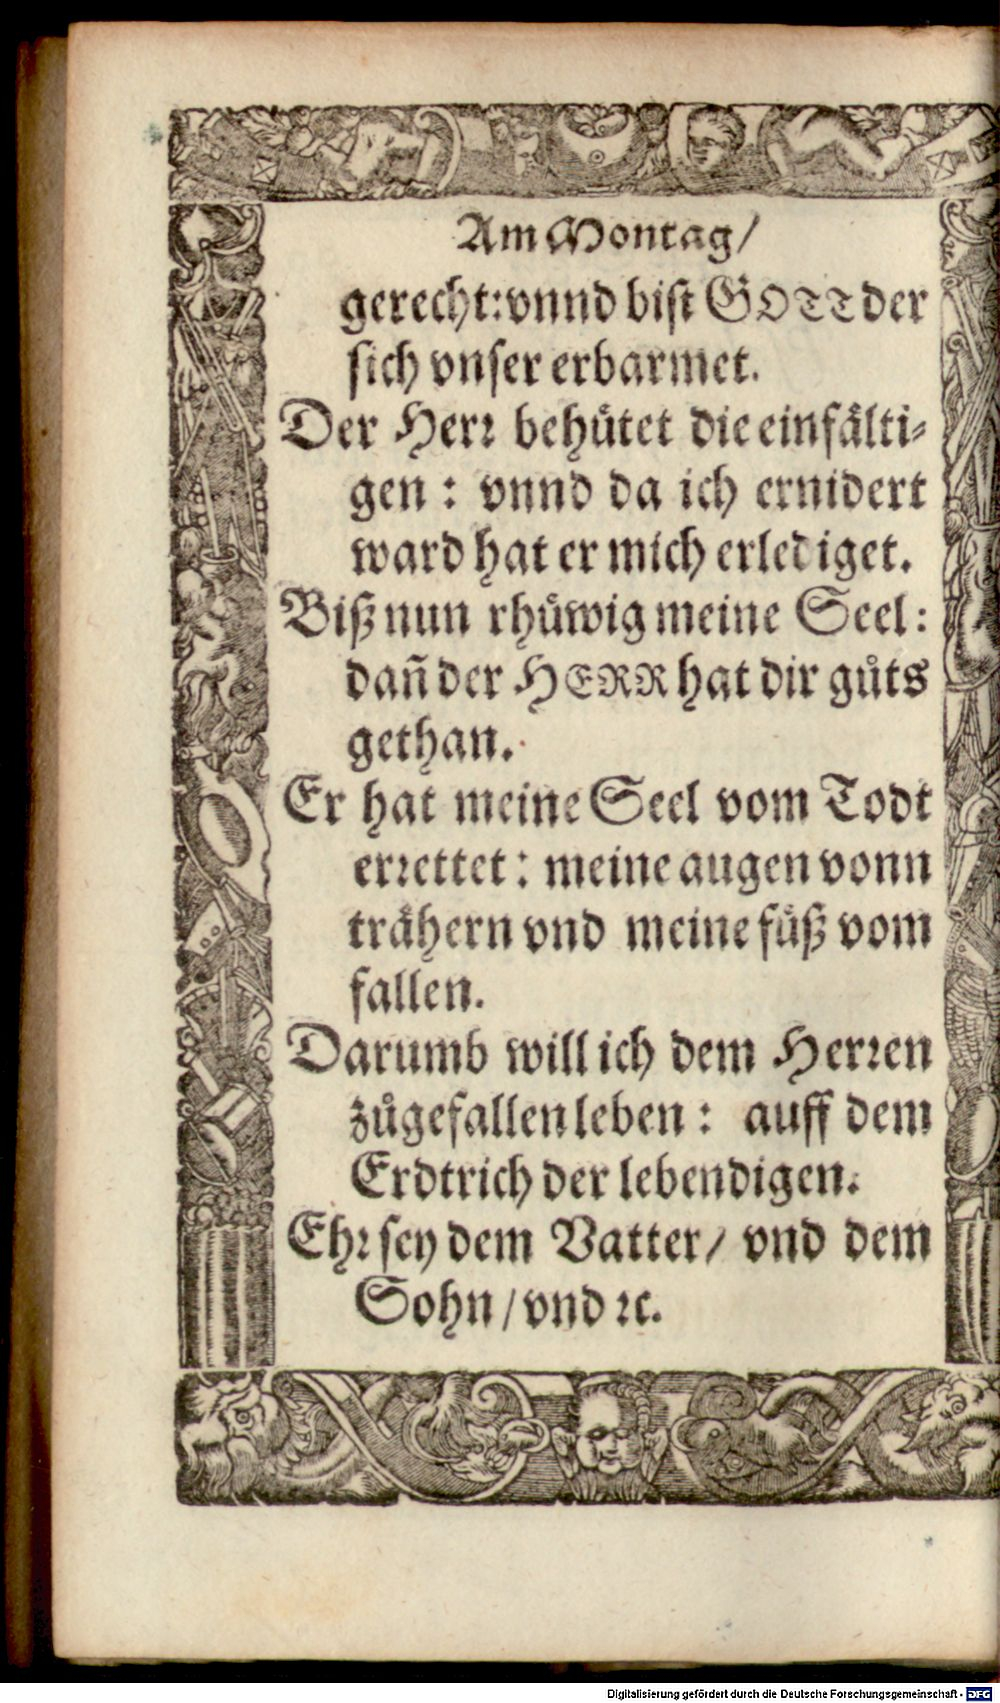 Am Montag/
gerecht: vnnd bist GOTT der
sich vnser erbarmet.
Der Herꝛ behuͤtet die einfaͤlti⸗
gen : vnnd da ich ernidert
ward hat er mich erlediget.
Biß nun rhuͤwig meine Seel:
dañ der HERR hat dir guͦts
gethan.
Er hat meine Seel vom Todt
erꝛettet: meine augen vonn
traͤhern vnd meine fuͤß vom
fallen.
Darumb will ich dem Herꝛen
zuͦgefallen leben : auff dem
Erdtrich der lebendigen.
Ehꝛ sey dem Vatter/ vnd dem
Sohn/ vnd ꝛc.
Digitalisierung gefördert durch die Deutsche Forschungsgemeinschaft - DFG